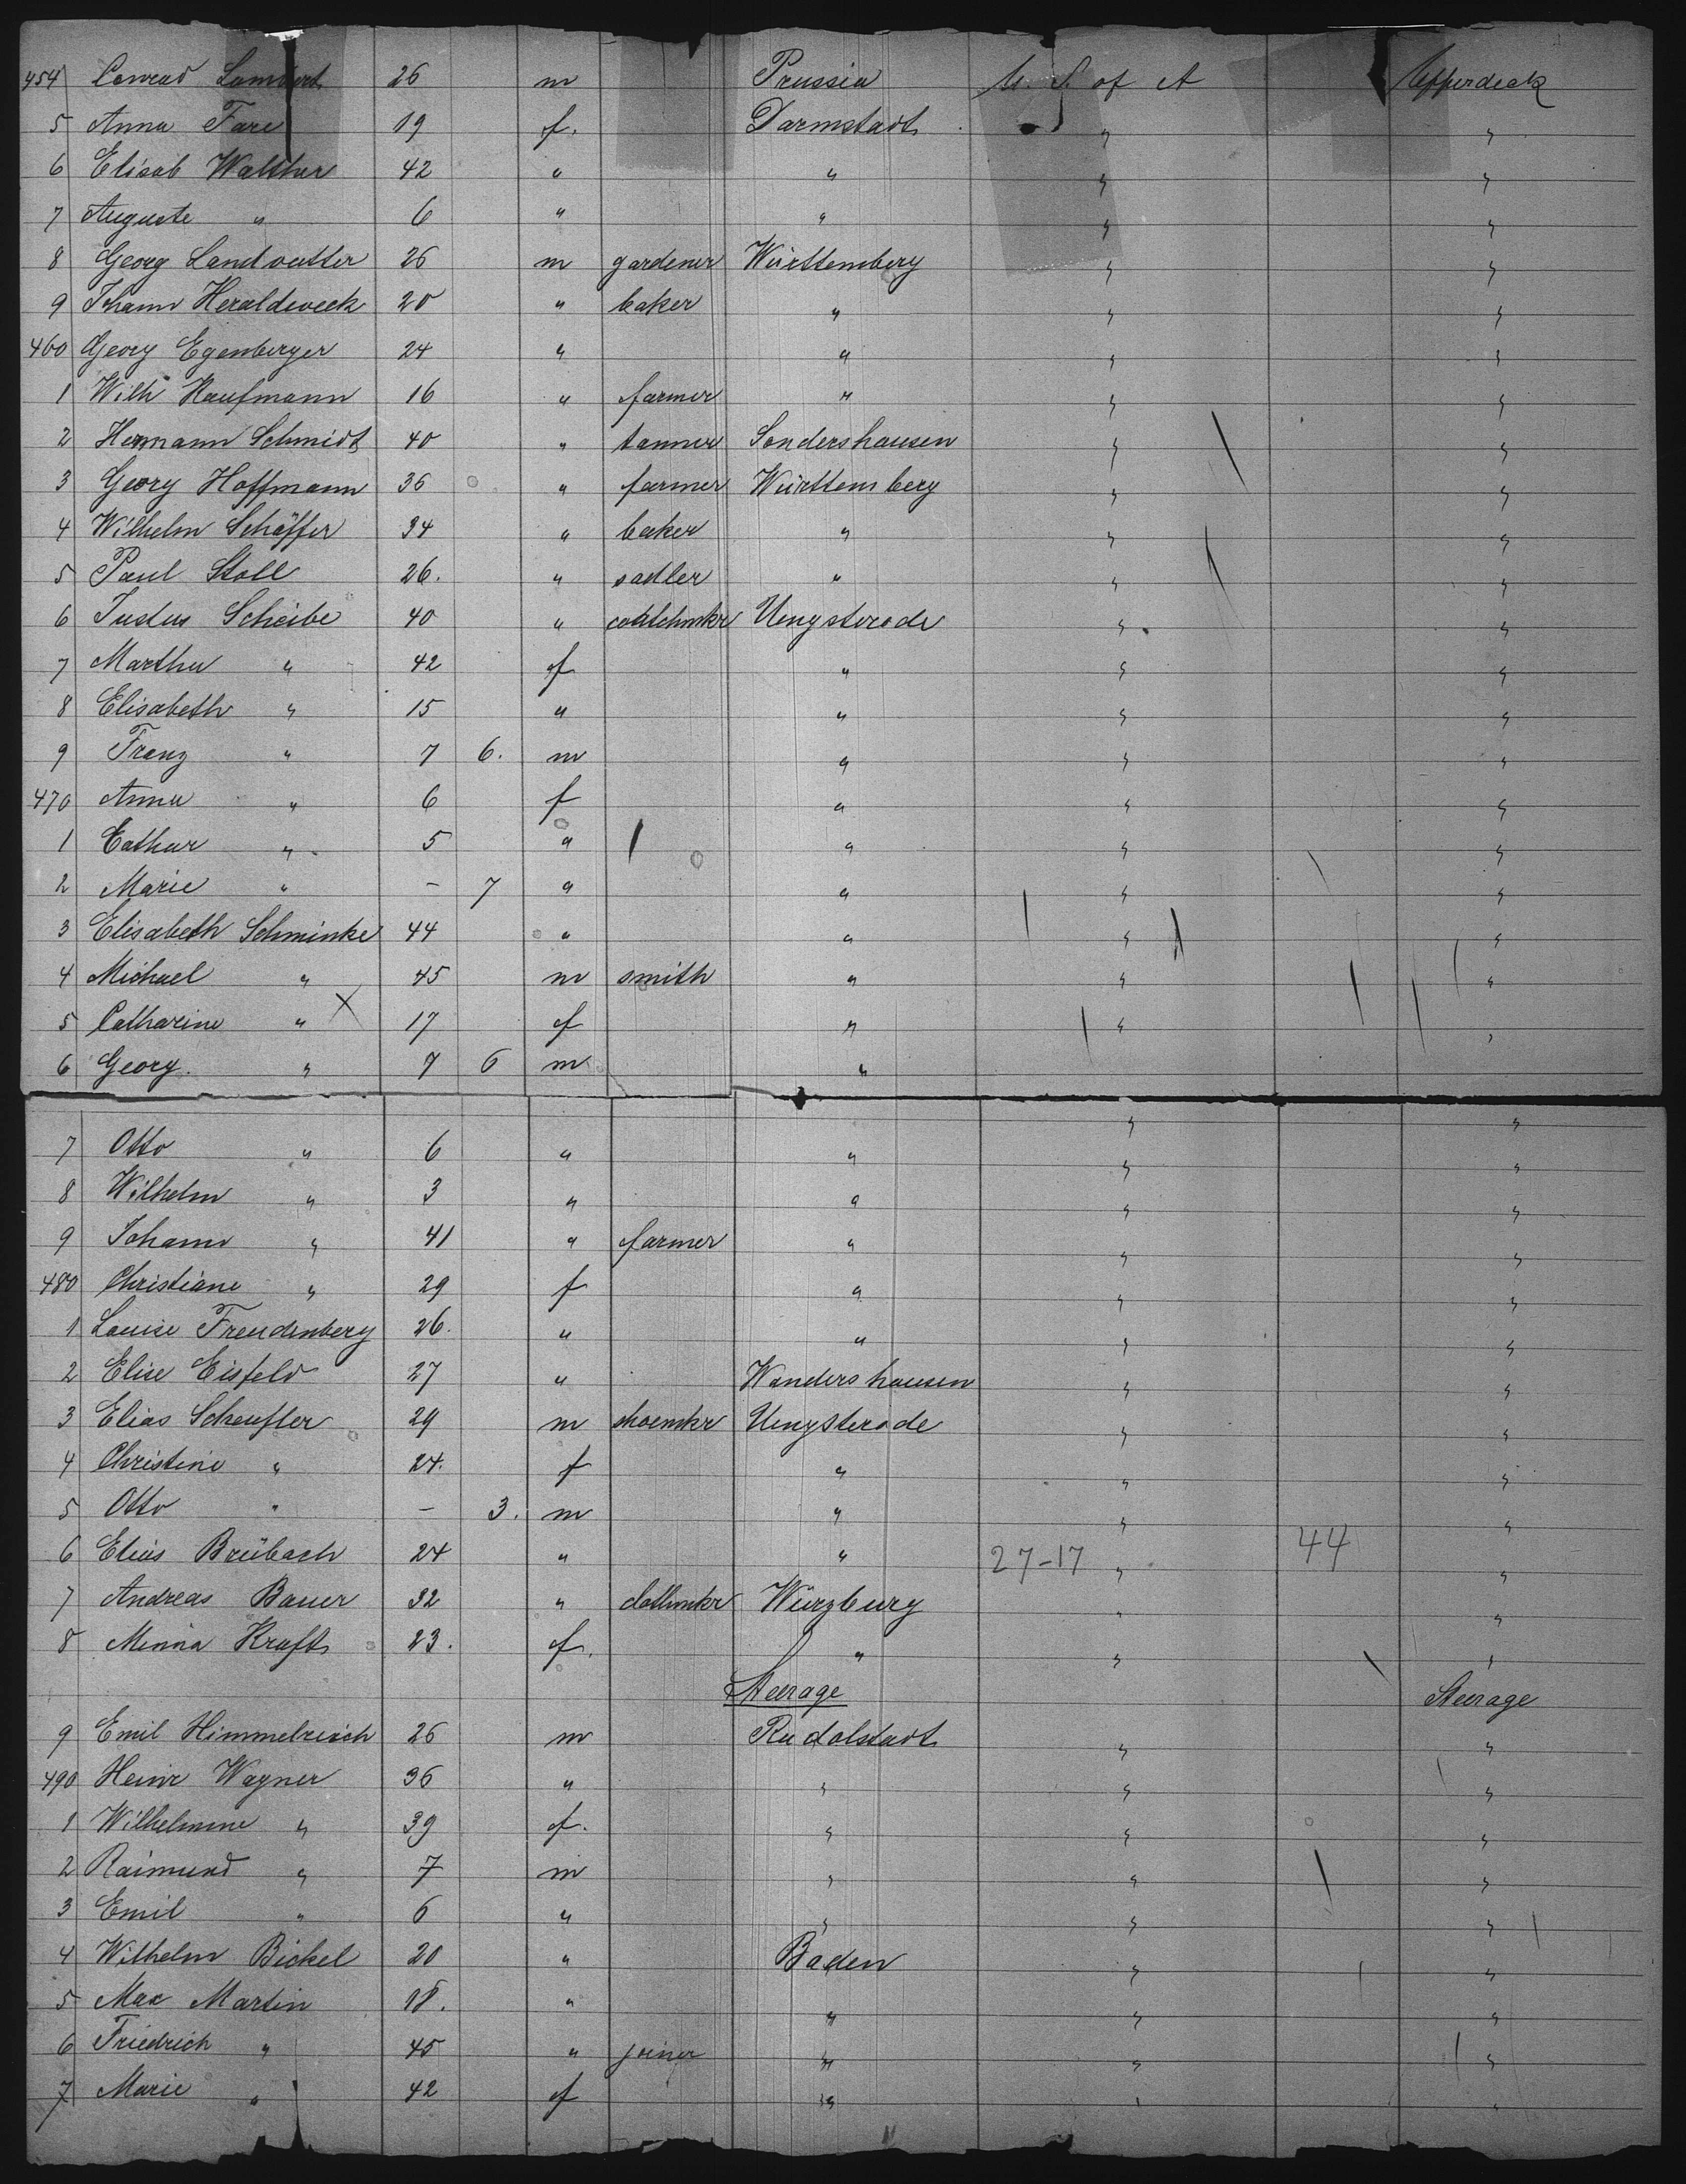 454 Conrad Lambert 26 m Prussia U. S. of A Upperdeck
5 Anna Fare 19 f. Darmstadt " "
6 Elisab Walther 42 " " " "
7 Auguste " 6 " " " "
8 Georg Landvatter 26 m gardener Württemberg " "
9 Johann Heraldweck 20 " baker " " "
460 Georg Egenberger 24 " " " "
1 Wilh Kaufmann 16 " farmer " " "
2 Hermann Schmidt 40 " tanner Sondershausen " "
3 Georg Hoffmann 36 " farmer Württemberg " "
4 Wilhelm Schäffer 34 " baker " " "
5 Paul Stoll 26. " sadler " " "
6 Justus Scheibe 40 " Uengsterode " "
7 Martha " 42 f " " "
8 Elisabeth " 15 " " " "
9 Franz " 7 6. m " " "
470 Anna " 6 f " " "
1 Cathar " 5 " " " "
2 Marie " - 7 " " " "
3 Elisabeth Schminke 44 " " " "
4 Michael " 45 m smith " " "
5 Catharine " 17 f " " "
6 Georg. " 7 6 m " " "
7 Otto " 6 " " " "
8 Wilhelm " 3 " " " "
9 Johann " 41 " farmer " " "
480 Christiane " 29 f " " "
1 Louise Freudenberg 26. " " " "
2 Elise Eisfeld 27 " Wandershausen " "
3 Elias Scheufler 29 m shoemkr Uengsterode " "
4 Christine " 24. f " " "
5 Otto " - 3. m " " "
6 Elias Brübach 24 " " 27-17 " 44 "
7 Andreas Bauer 32 " clothmkr Würzburg " "
8 Minna Kraft 23. f. " " "
Steerage Steerage
9 Emil Himmelreich 26 m Rudolstadt " "
490 Heinr Wagner 36 " " " "
1 Wilhelmine " 39 f. " " "
2 Raimund " 7 m " " "
3 Emil " 6 " " " "
4 Wilhelm Bickel 20 " Baden " "
5 Max Martin 18. " " " "
6 Friedrich " 45 " joiner " " "
7 Marie " 42 f " " "